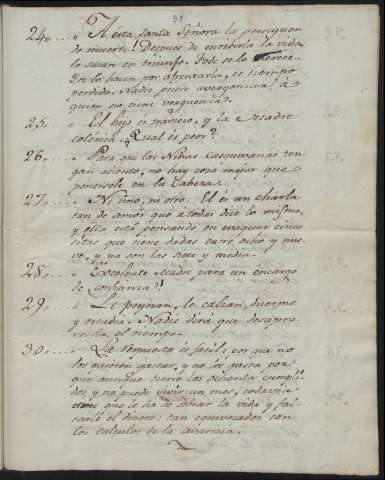 51
24.... „ A esta santa Señora la persiguen
de muerte! Despues de escribirla la vida
la sacan en triunfo. Todo se lo merece.
Si lo hacen por afrentarla, es tiempo
perdido. Nadie puede avergonzar á
quien no tiene verguenza.
25..... „ El hijo es travieso, y la Madre
colérica. ¿Qual es peor?
26..... „ Para que las Niñas casquivanas ten-
gan asiento, no hay cosa mejor que
ponerselo en la Cabeza.
27..... „ Ni uno, ni otro. El es un charla-
tan de amor que á todas dice lo mismo,
y ella está pensando en evaquar cinco
citas que tiene dadas entre ocho y nue-
ve, y ya son las siete y media.
28..... „ Excelente Madre para un encargo
de confianza!!
29..... „ Le peynan, le calzan, duerme
y estudia. Nadie dirá que desapro-
vecha el tiempo.
30..... „ La respuesta es facil: por que no
los quieren gastar, y no los gasta por
que aunque tiene los ochenta cumpli-
dos y no puede vivir un mes, todavia
teme que le ha de sobrar la vida y fal-
tarle el dinero: tan equivocados son
los calculos de la avaricia.